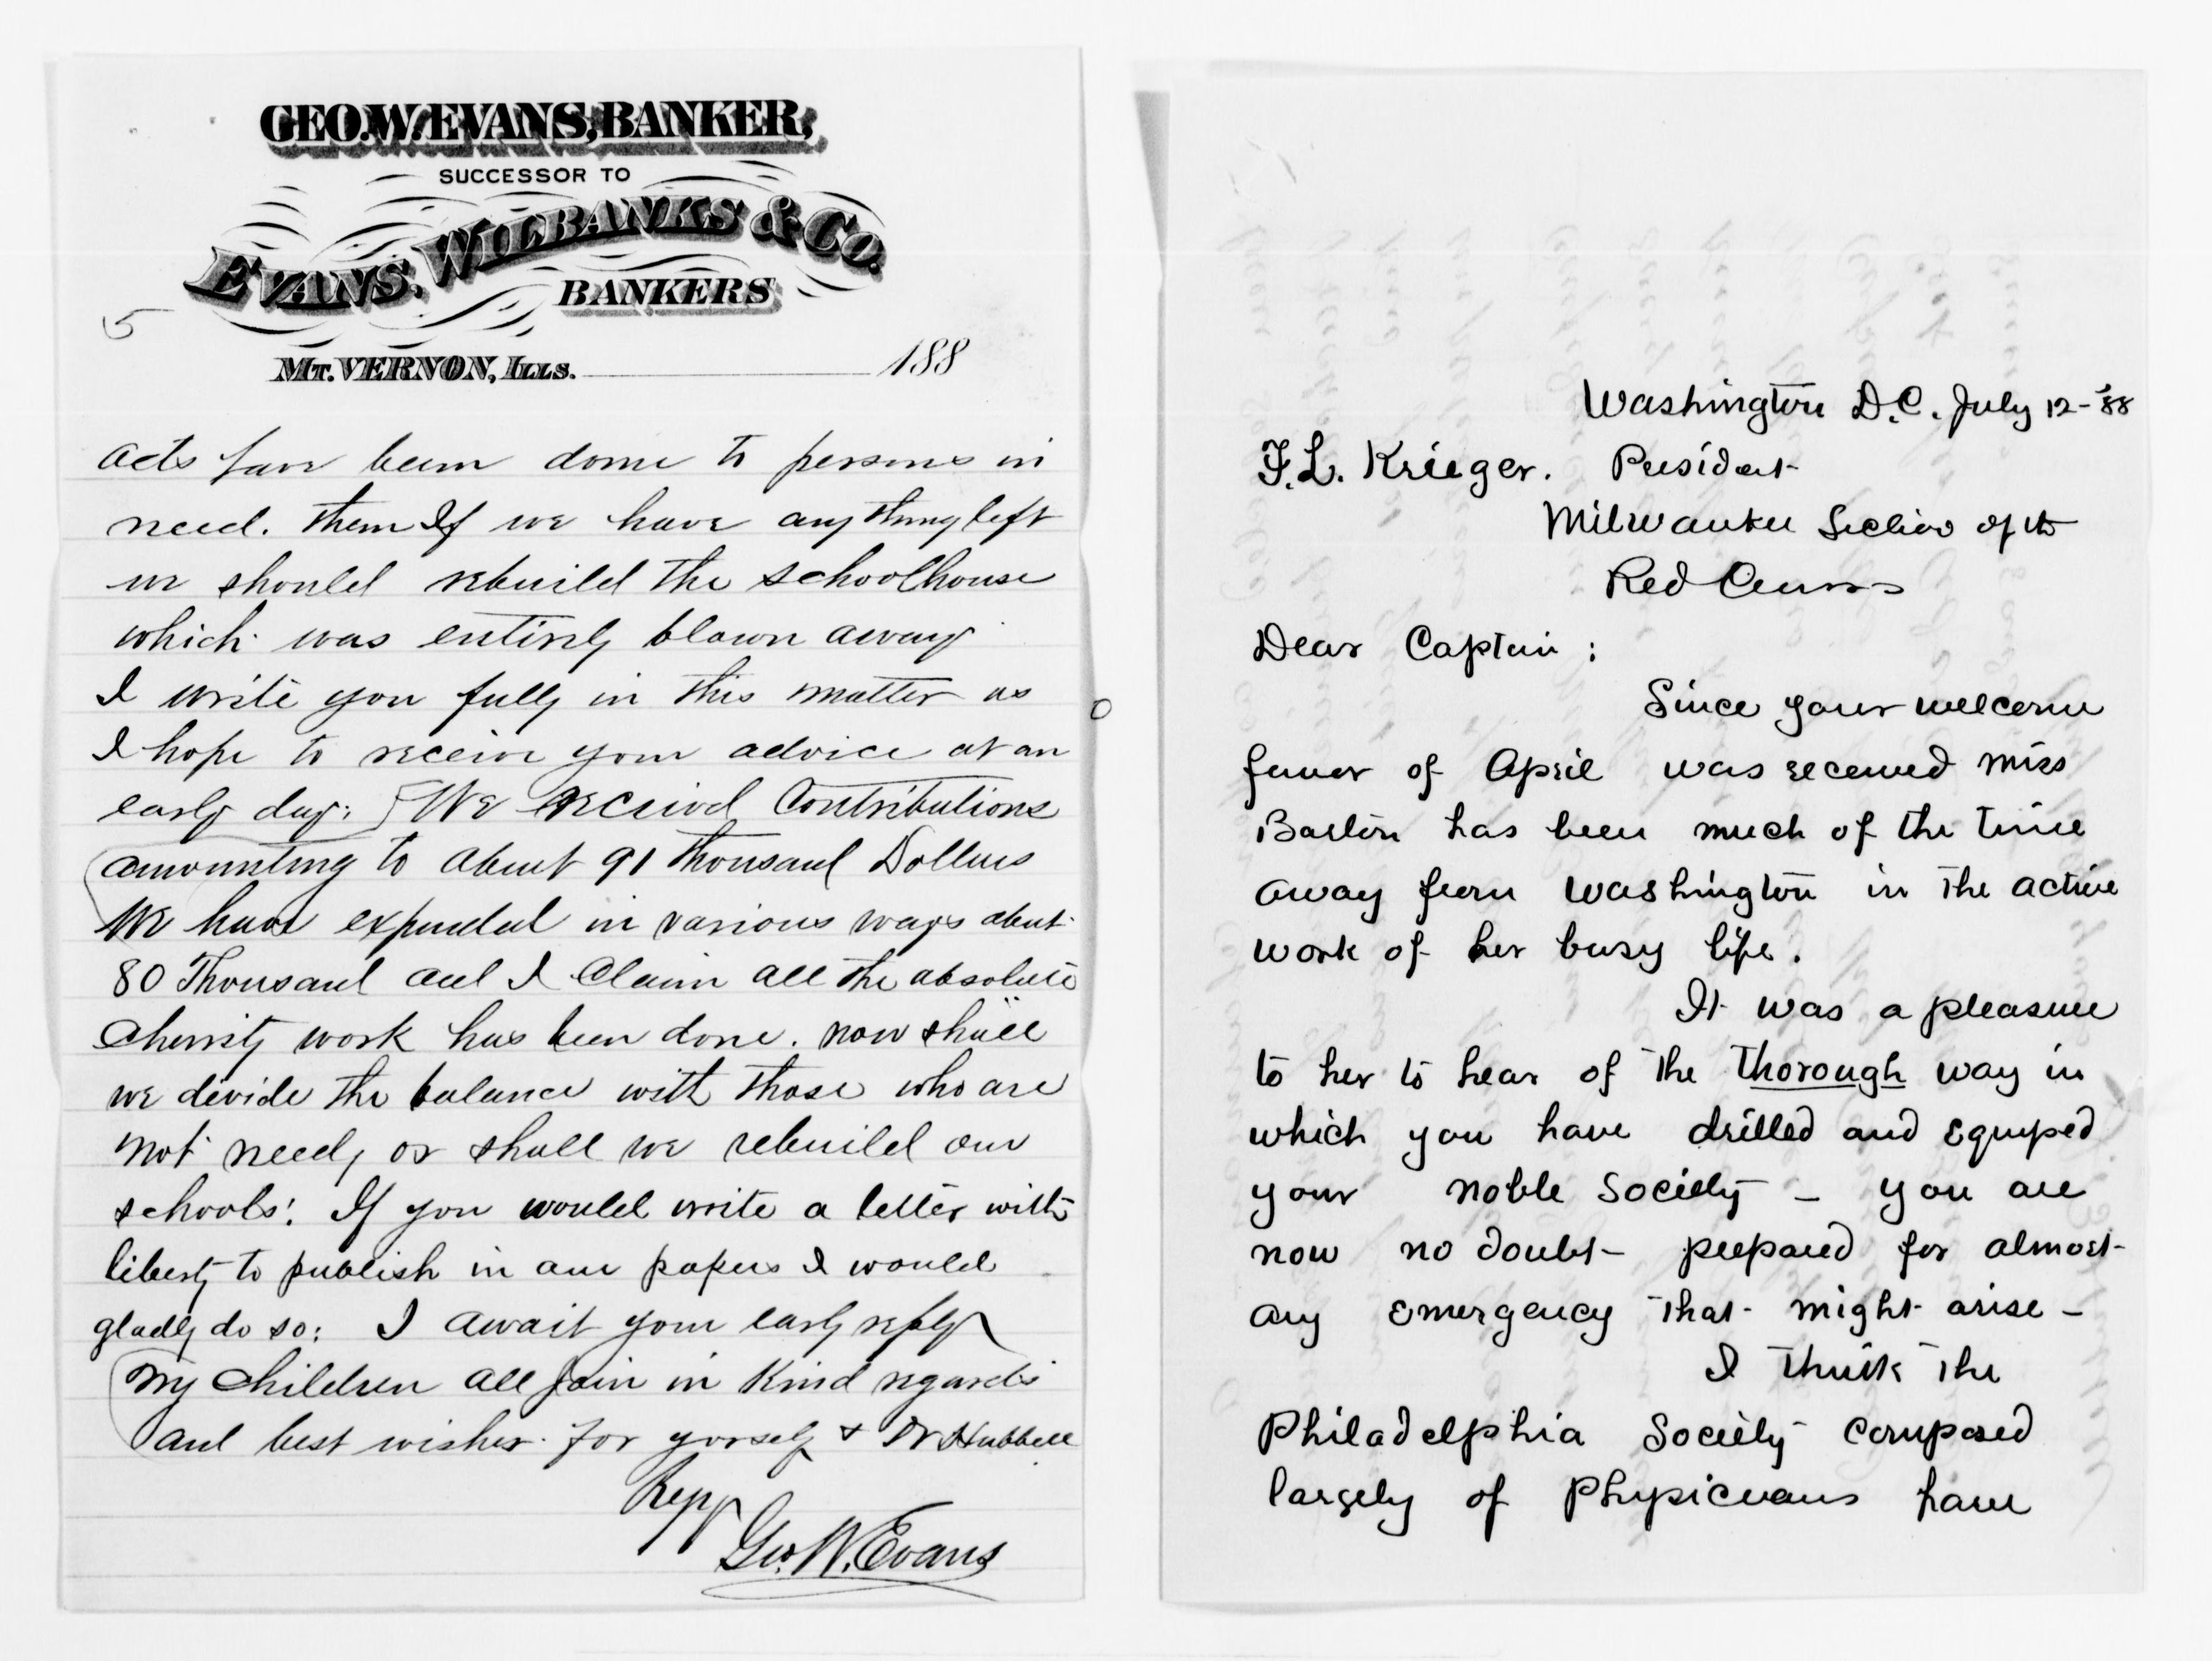 GEO. W. EVANS, BANKER,
SUCCESSOR TO
EVANS, WILBANKS & CO.
BANKERS
5
MT. VERNON, ILLS. 188
acts have been done to persons in
need. them If we have any thing left
we should rebuild the schoolhouse
which was entirely blown away
I write you fully in this matter as
I hope to receive your advice at an
early day: [We received Contributions
amounting to about 91 thousand Dollars
We have expended in various ways about
80 Thousand and I Claim all the absolute
Cherrity work has been done. now shall
we devide the balance with those who are
not need, or shall we rebuild our
schools: If you would write a letter with
liberty to publish in our papers I would
gladly do so: I await your early reply
My Children all join in Kind regards
and best wishes for yorself & Dr Hubbell
Respy
Geo. W. Evans
Washington D.C. July 12-'88
F. L. Krieger. President
Milwaukee Section of the
Red Cross
Dear Captain:
Since your welcome
favor of April was received Miss
Barton has been much of the time
away from Washington in the active
work of her busy life.
It was a pleasure
to her to hear of the thorough way in
which you have drilled and equiped
your noble Society - you are
now no doubt prepared for almost
any emergency that might arise -
I think the
Philadelphia Society composed
largely of Physicians have